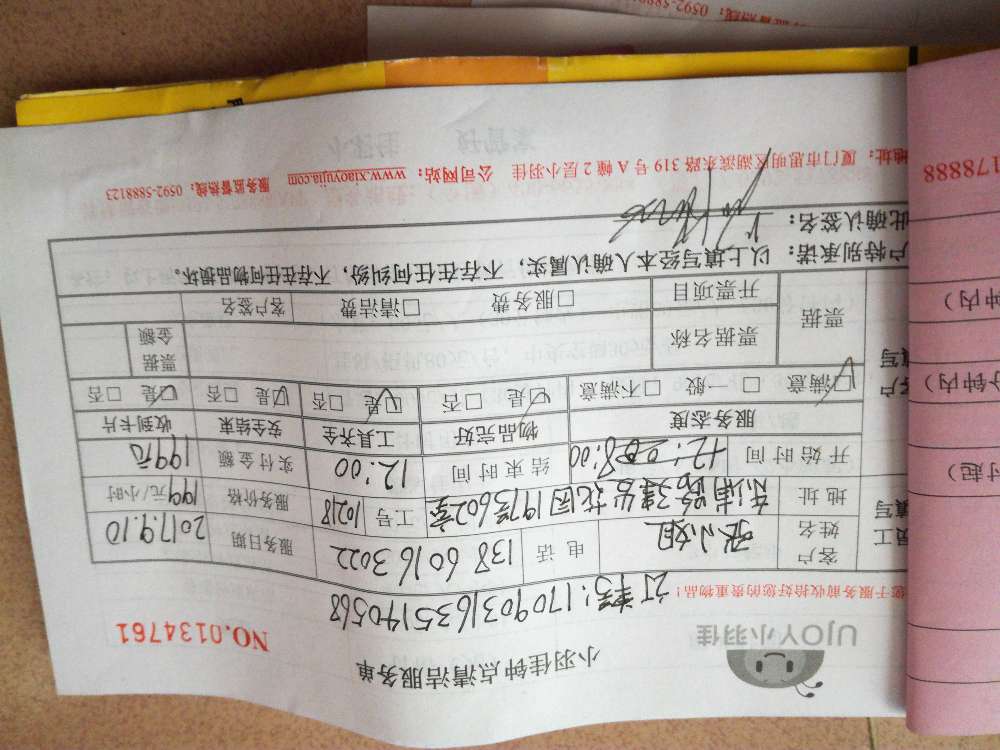 UJOY小羽佳
小羽佳钟点清洁服务单
NO.0134761
您于服务前收拾好您的贵重物品!
订单号:17090316351405​68
员工填写
客户姓名 张小姐 电话 13860163022 服务日期 2017.9.10
地址 东浦路建发花园19号602室 工号 10218 服务价格 199元/小时
开始时间 8:00 结束时间 12:00 实付金额 199元
客户填写
服务态度 物品完好 工具齐全 安全结束 收到卡片
☑满意 □一般 □不满意 ☑是 □否 ☑是 □否 ☑是 □否 ☑是 □否
票据 票据名称 票据金额
开票项目 □服务费 □清洁费 客户签名
户特别承诺:以上填写经本人确认属实,不存在任何纠纷,不存在任何物品损坏。
此确认签名:
地址:厦门市思明区湖滨东路319号A幢2层小羽佳 公司网站:www.xiaoyujia.com 服务监督热线:0592-5888123
178888
钟内)
分钟内)
时起)